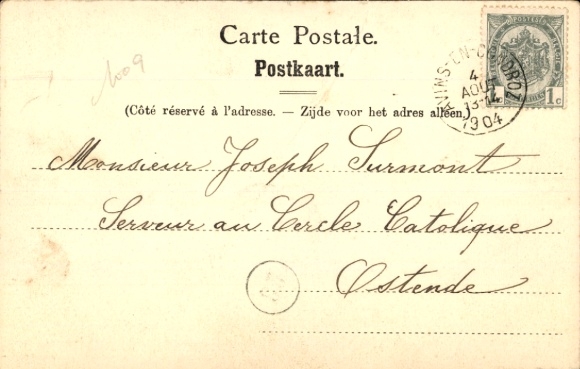 Carte Postale.
Postkaart.
1009
(Côté réservé à l'adresse. — Zijde voor het adres alleen.)
AVINS-EN-CONDROZ
4
AOUT
13-14
1904
1c 1c
Monsieur Joseph Surmont
Serveur au Cercle Catolique
Ostende